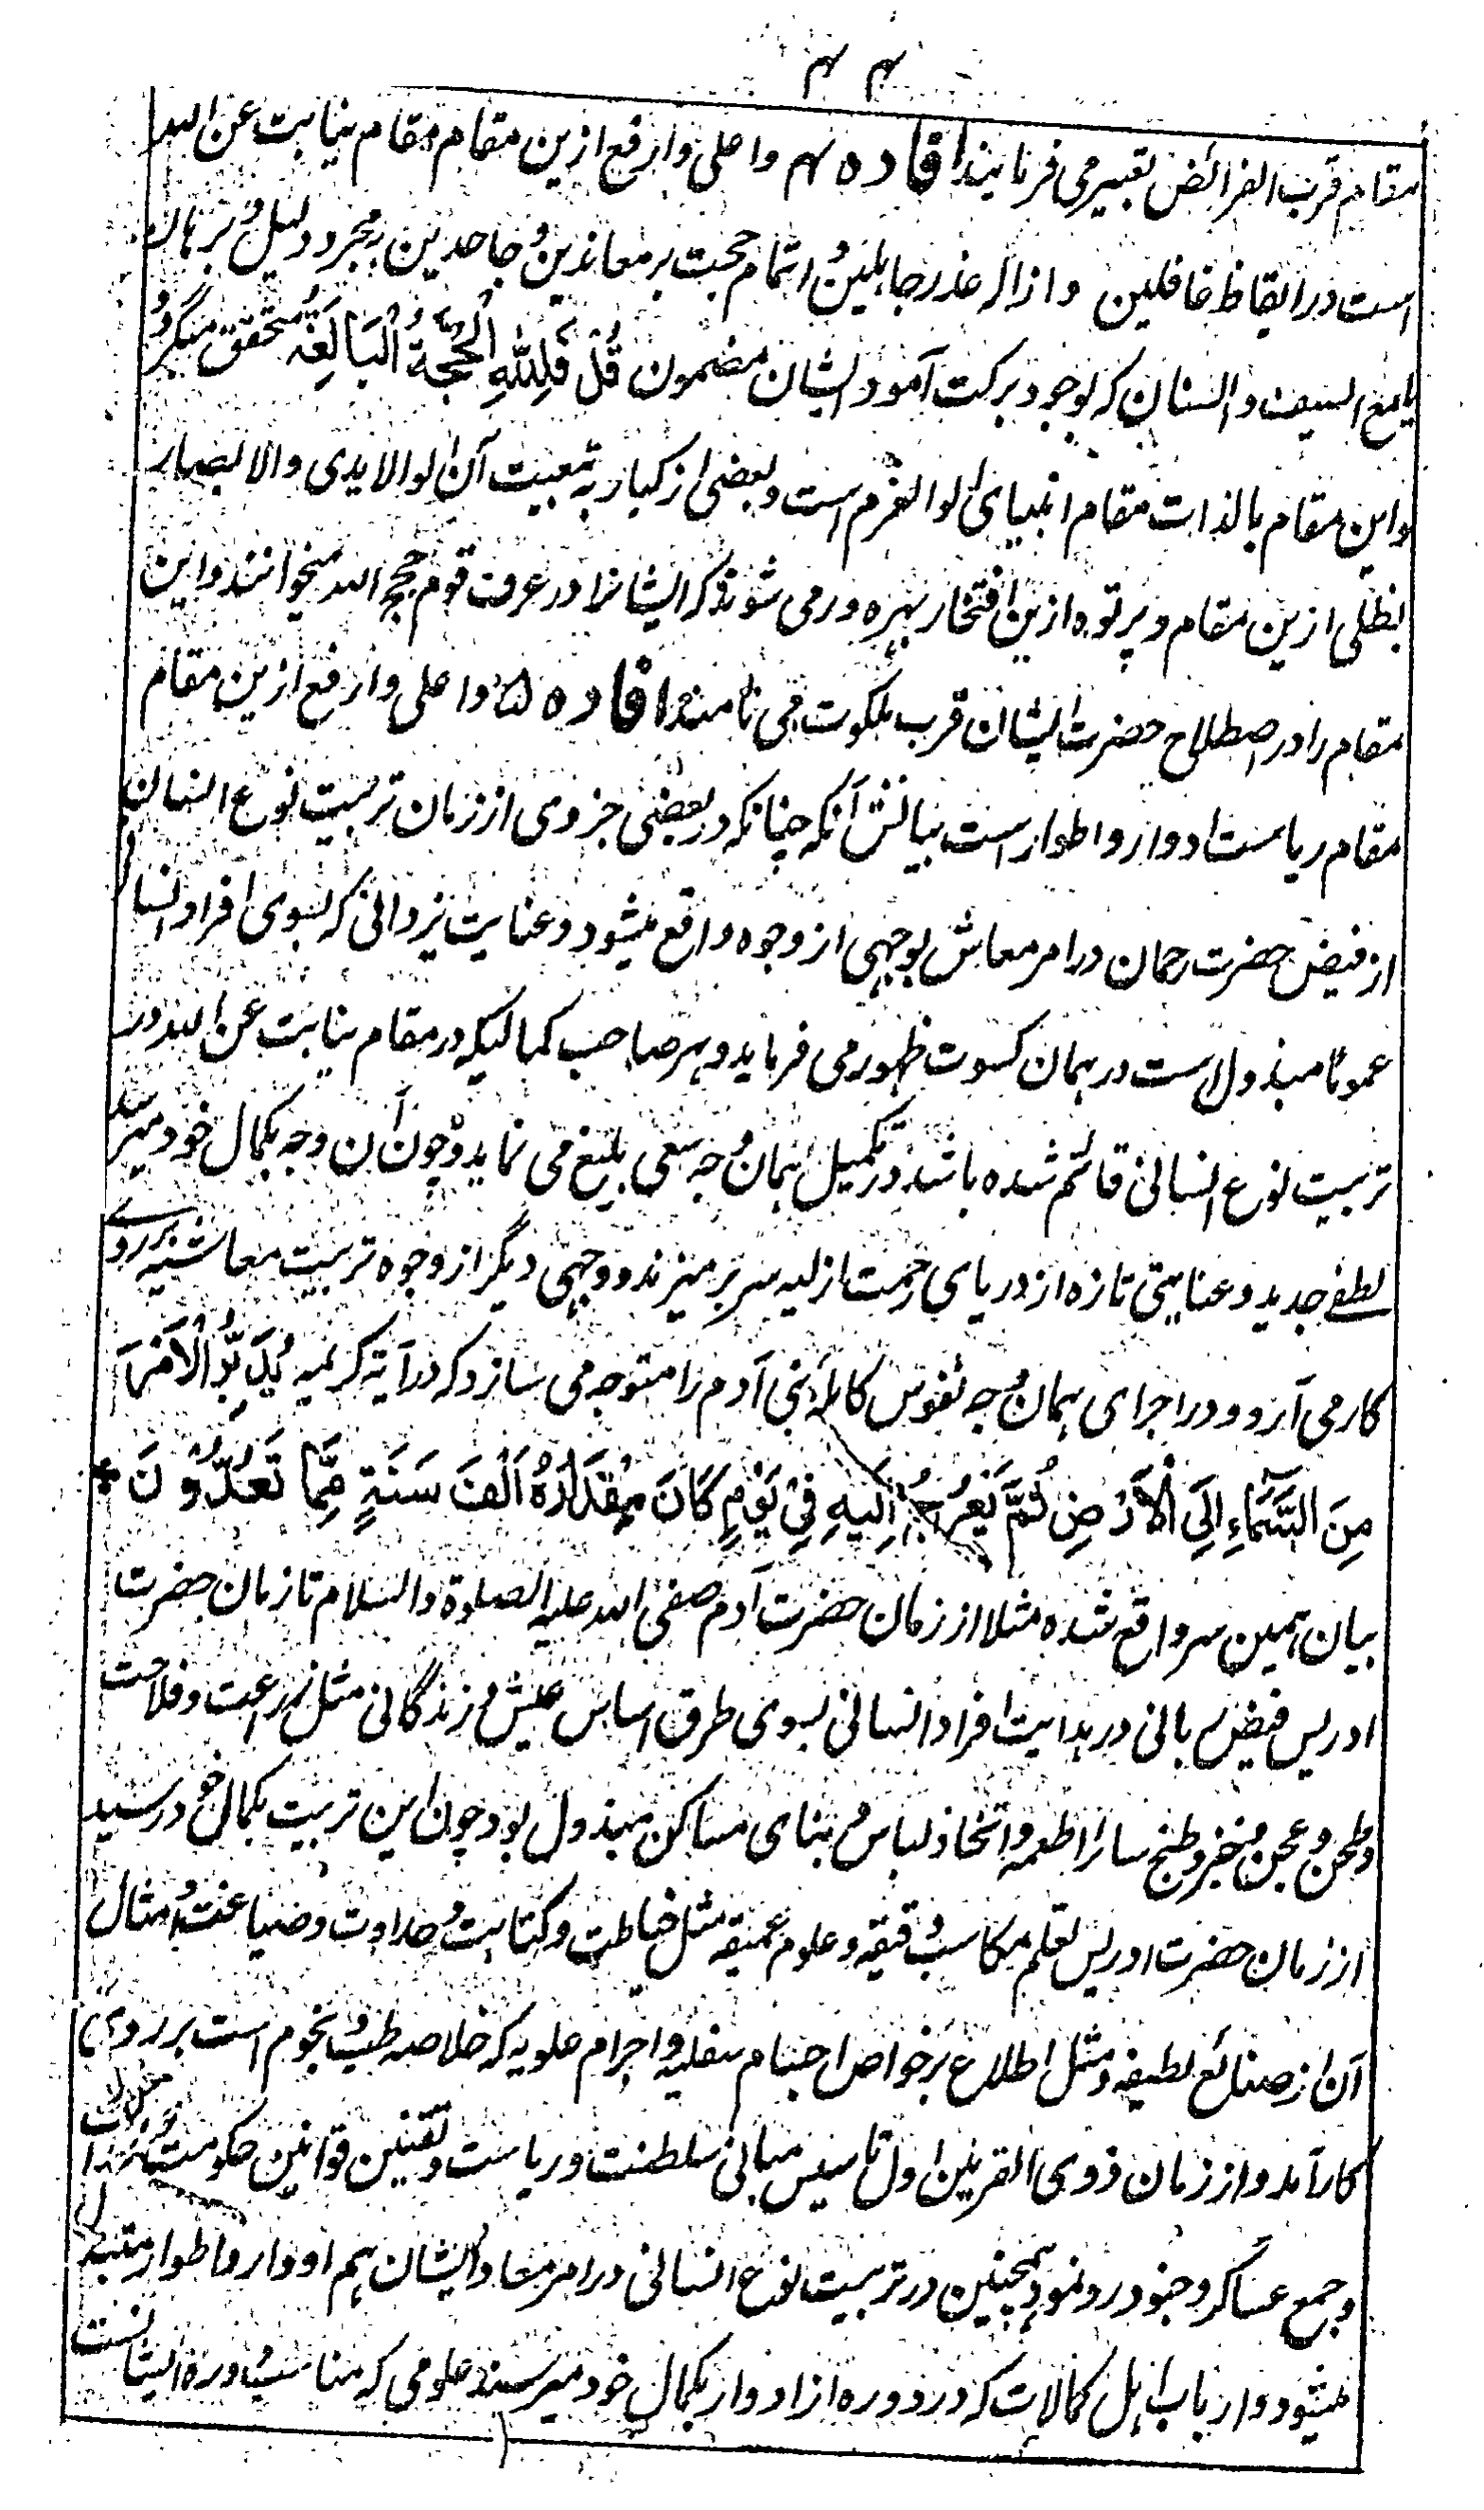 ۴۴
مقام قرب الفرائض تعبیر می فرمایند افاده ۴ واعلی وارفع ازین مقام مقام نیابت عن الله
است در ایقاظ غافلین وازاله عذر جاهلین و اتمام حجت بر معاندین و جاحدین بمجرد دلیل و برهان
یا مع السیف والسنان که بوجود برکت آمود ایشان مضمون قُلْ فَلِلّٰهِ الْحُجَّةُ الْبَالِغَةُ متحقق میگردد
واین مقام بالذات مقام انبیای اولو العزم است و بعضی از کبار به تبعیت آن اولو الایدی والابصار
بظلی ازین مقام و پرتوه ازین افتخار بهره ور می شوند که ایشانرا در عرف قوم حجج الله میخوانند واین
مقام را در اصطلاح حضرت ایشان قرب ملکوت می نامند افاده ۵ واعلی وارفع ازین مقام
مقام ریاست ادوار واطوار است بیانش آنکه چنانکه در بعضی جزوی از زمان تربیت نوع انسان
از فیض حضرت رحمان در امر معاش بوجهی از وجوه واقع میشود وعنایت یزدانی که بسوی افراد انسان
عموما مبذول است در همان کسوت ظهور می فرماید و هر صاحب کمالیکه در مقام نیابت عن الله در
تربیت نوع انسانی قائم شده باشد در تکمیل همان وجه سعی بلیغ می نماید و چون آن وجه بکمال خود میرسد
لطفے جدید وعنایتی تازه از دریای رحمت ازلیه سر بر میزند ووجهی دیگر از وجوه تربیت معاشیه بر روے
کار می آرد و در اجرای همان وجه نفوس کامله بنی آدم را متوجه می سازد که در آیة کریمه یُدَبِّرُ الْاَمْرَ
مِنَ السَّمَاءِ اِلَی الْاَرْضِ ثُمَّ یَعْرُجُ اِلَیْهِ فِیْ یَوْمٍ کَانَ مِقْدَارُهُ اَلْفَ سَنَةٍ مِّمَّا تَعُدُّوْنَ *
بیان همین سر واقع شده مثلا از زمان حضرت آدم صفی الله علیه الصلوة والسلام تا زمان حضرت
ادریس فیض ربانی در هدایت افراد انسانی بسوی طرق اساس عیش و زندگانی مثل زراعت وفلاحت
وطحن وعجن وخبز وطبخ سائر اطعمه واتخاذ لباس و بنای مساکن مبذول بود چون این تربیت بکمال خود رسید
از زمان حضرت ادریس تعلم مکاسب دقیقه وعلوم عمیقه مثل خیاطت وکتابت وحدادت وصیاغت و امثال
آن از صنائع لطیفه و مثل اطلاع بر خواص اجسام سفلیه واجرام علویه که خلاصه طب و نجوم است بر روی
کار آمد واز زمان ذوی القرنین اول تاسیس مبانی سلطنت وریاست وتقنین قوانین حکومت
وجمع عساکر وجنود رو نمود همچنین در تربیت نوع انسانی در امر معاد ایشان هم ادوار واطوار متبدل
میشود وارباب اهل کمالات که در دوره از ادوار بکمال خود میرسند علومی که مناسب دوره ایشانست